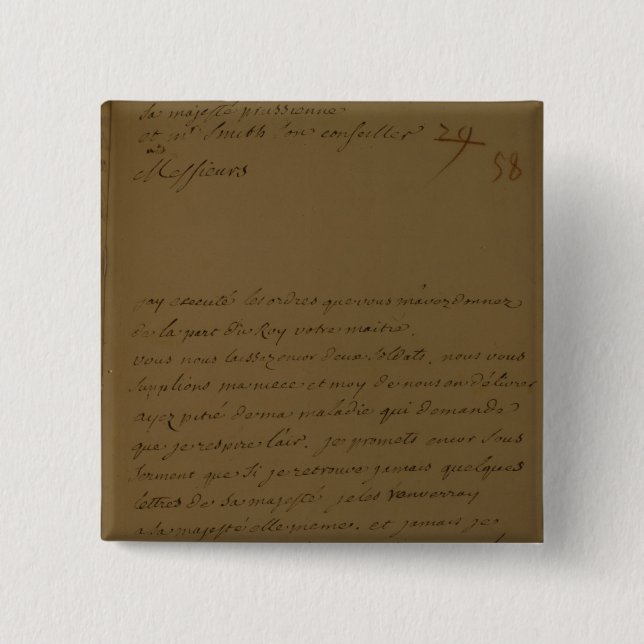 sa majesté prussienne
et mr Smith son conseiller 29
58
Messieurs
jay executé les ordres que vous m'avez donnez
de la part du Roy votre maitre.
vous nous laissez encor deux soldats. nous vous
supplions ma niece et moy de nous en délivrer
ayez pitié de ma maladie qui demande
que je respire l'air. je promets encor sous
serment que si je retrouve jamais quelques
lettres de sa majesté je les renverray
a sa majesté elle meme. et jamais je